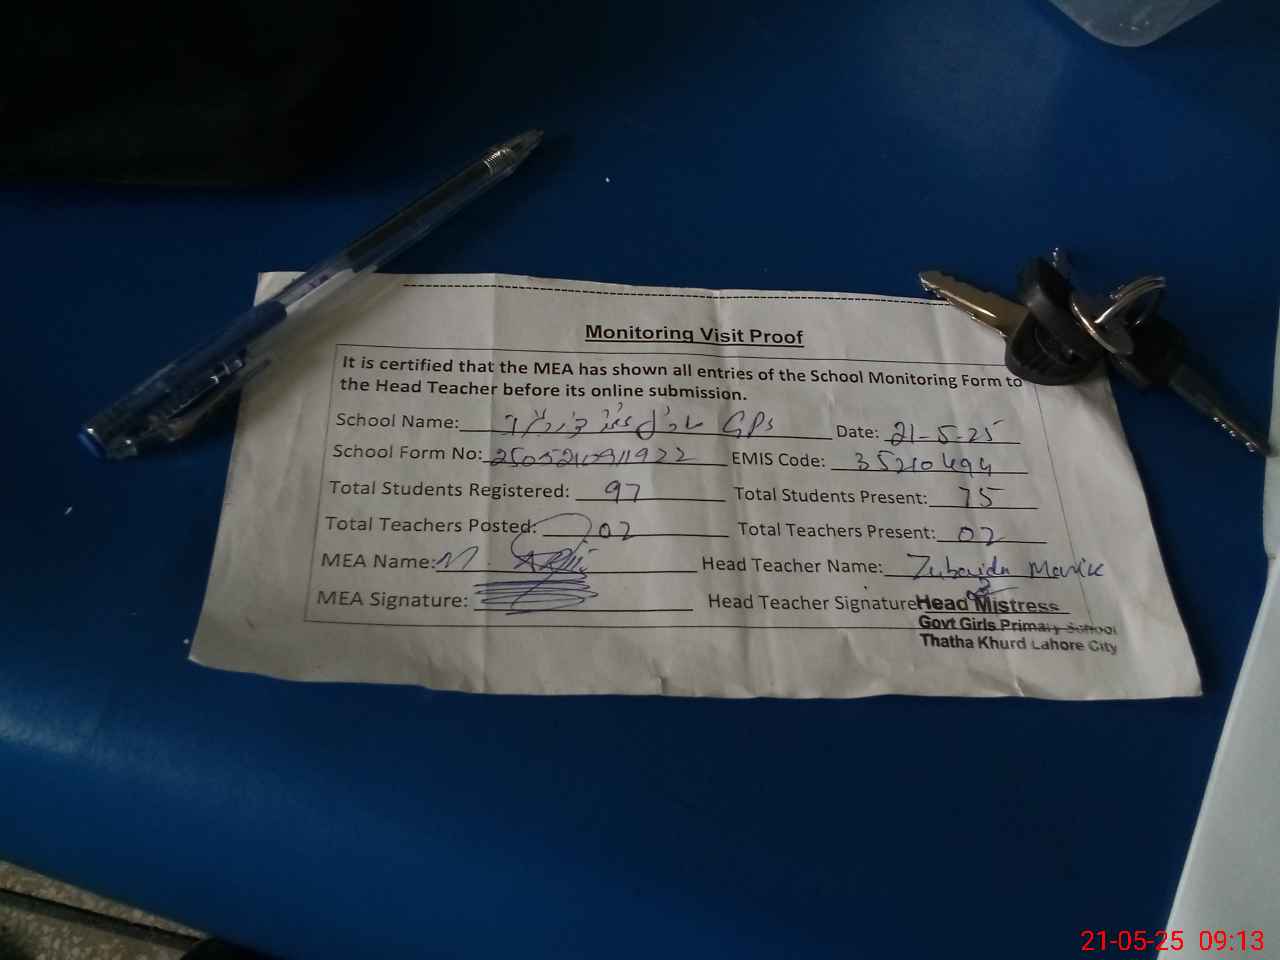 Monitoring Visit Proof
It is certified that the MEA has shown all entries of the School Monitoring Form to
the Head Teacher before its online submission.
School Name: GPS Date: 21-5-25
School Form No: EMIS Code: 35210494
Total Students Registered: 97 Total Students Present: 75
Total Teachers Posted: 02 Total Teachers Present: 02
MEA Name: M. Head Teacher Name: Zubaida
MEA Signature: Head Teacher Signature
Head Mistress
Govt Girls Primary School
Thatha Khurd Lahore City
21-05-25 09:13